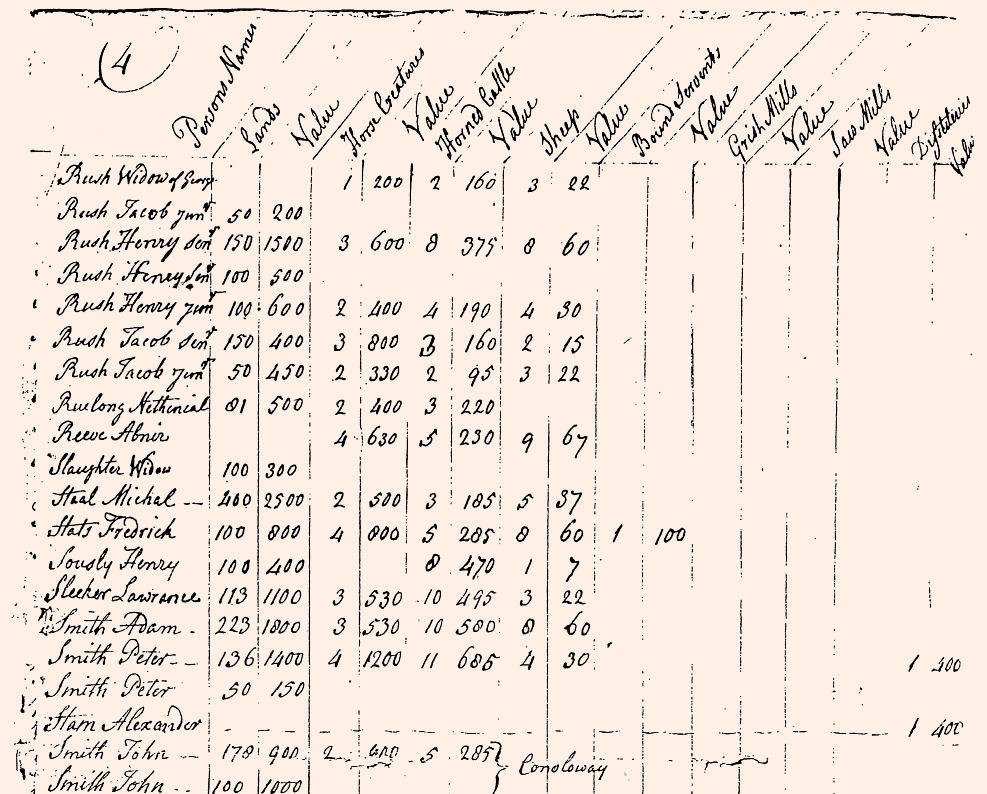 (4
Persons Names Lands Value Horse Creatures Value Horned Cattle Value Sheep Value Bound Servants Value Grist Mills Value Saw Mills Value Distileries Valu
Rush Widow of Georg 1 200 2 160 3 22
Rush Jacob junr 50 200
Rush Henry senr 150 1500 3 600 8 375 8 60
Rush Henry senr 100 500
Rush Henry junr 100 600 2 400 4 190 4 30
Rush Jacob senr 150 400 3 800 3 160 2 15
Rush Jacob junr 50 450 2 330 2 95 3 22
Ruelong Nethinial 81 500 2 400 3 220
Reeve Abnir 4 630 5 230 9 67
Slaughter Widow 100 300
Staal Michal 400 2500 2 500 3 185 5 37
Stats Fredrick 100 800 4 800 5 285 8 60 1 100
Sously Henry 100 400 8 470 1 7
Sleeker Lawrance 113 1100 3 530 10 495 3 22
Smith Adam 223 1800 3 530 10 580 8 60
Smith Peter 136 1400 4 1200 11 685 4 30 1 400
Smith Peter 50 150
Stam Alexander 1 400
Smith John 178 900 2 5 285 } Conoloway
Smith John 100 1000